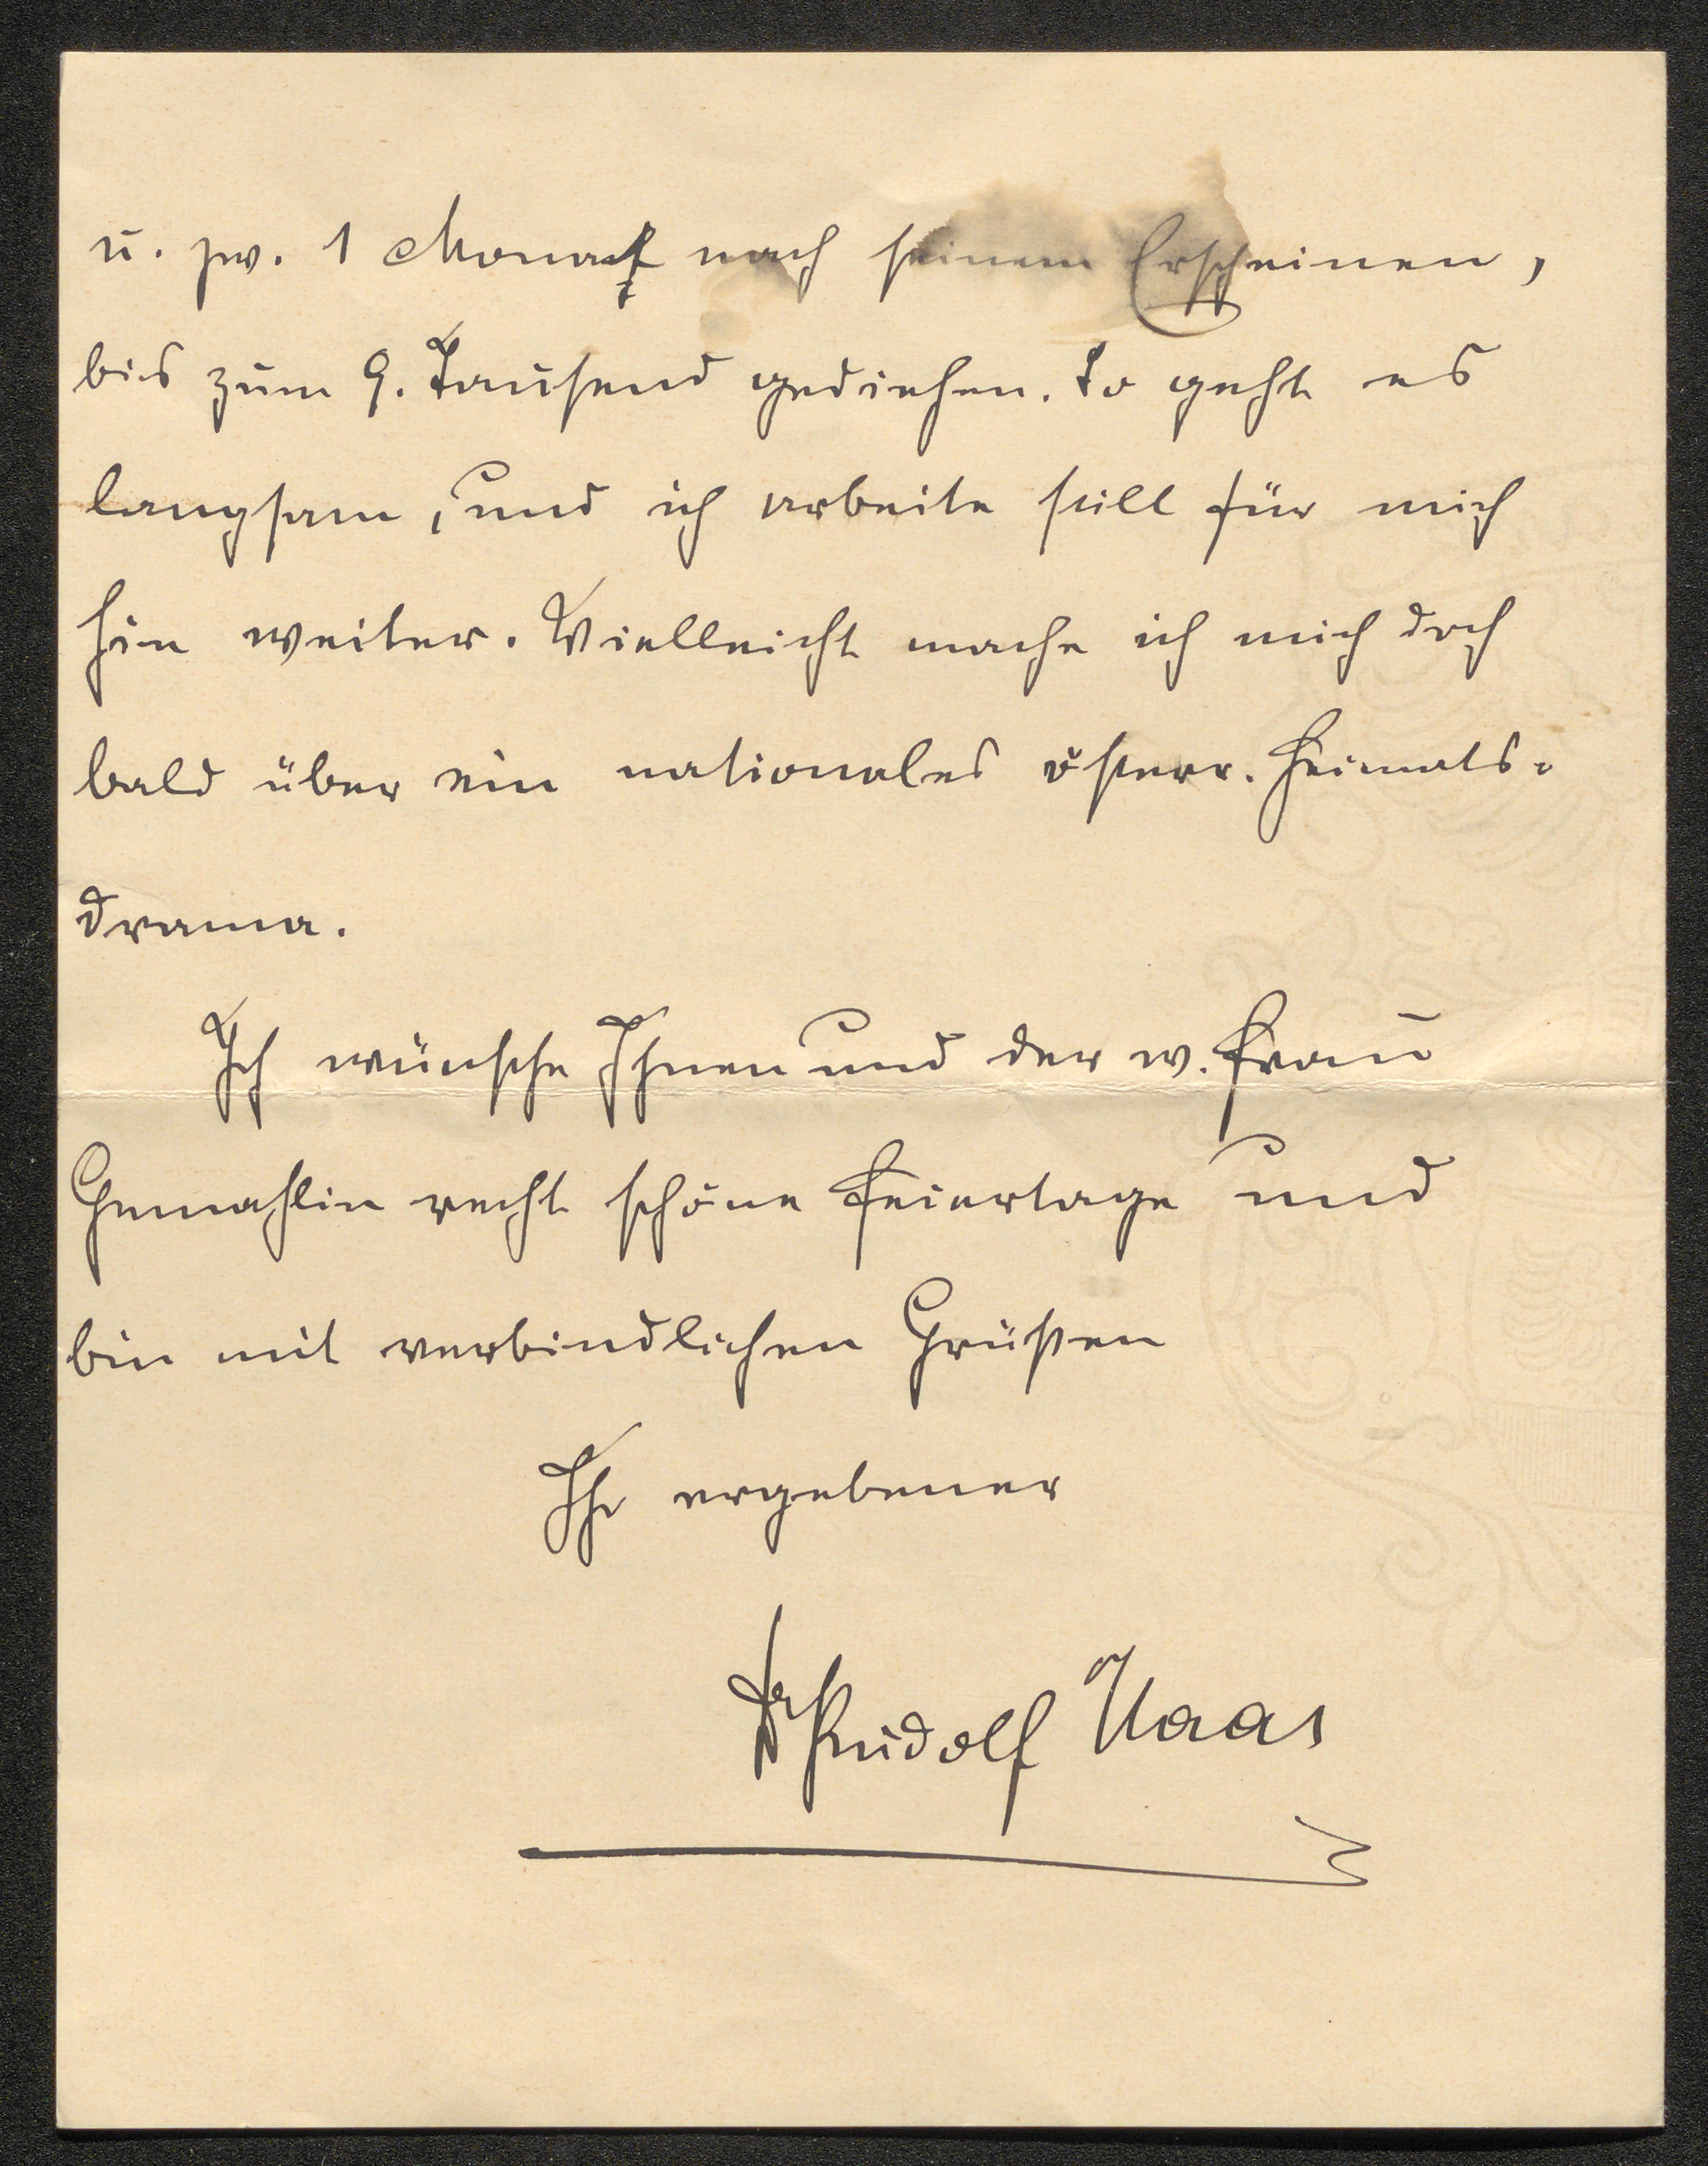 u. zw. 1 Monat nach seinem Erscheinen,
bis zum 9. Tausend gediehen. So geht es
langsam, und ich arbeite still für mich
hin weiter. Vielleicht mache ich mich doch
bald über ein nationales österr. Heimats-
drama.
Ich wünsche Ihnen und der w. Frau
Gemahlin recht schöne Feiertage und
bin mit verbindlichen Grüßen
Ihr ergebener
Dr Rudolf Haas